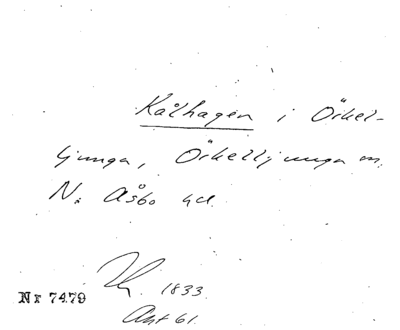 Kålhagen i Örkel-
ljunga, Örkelljunga sn,
N. Åsbo hd.
1833
Nr 7479
Akt 61.